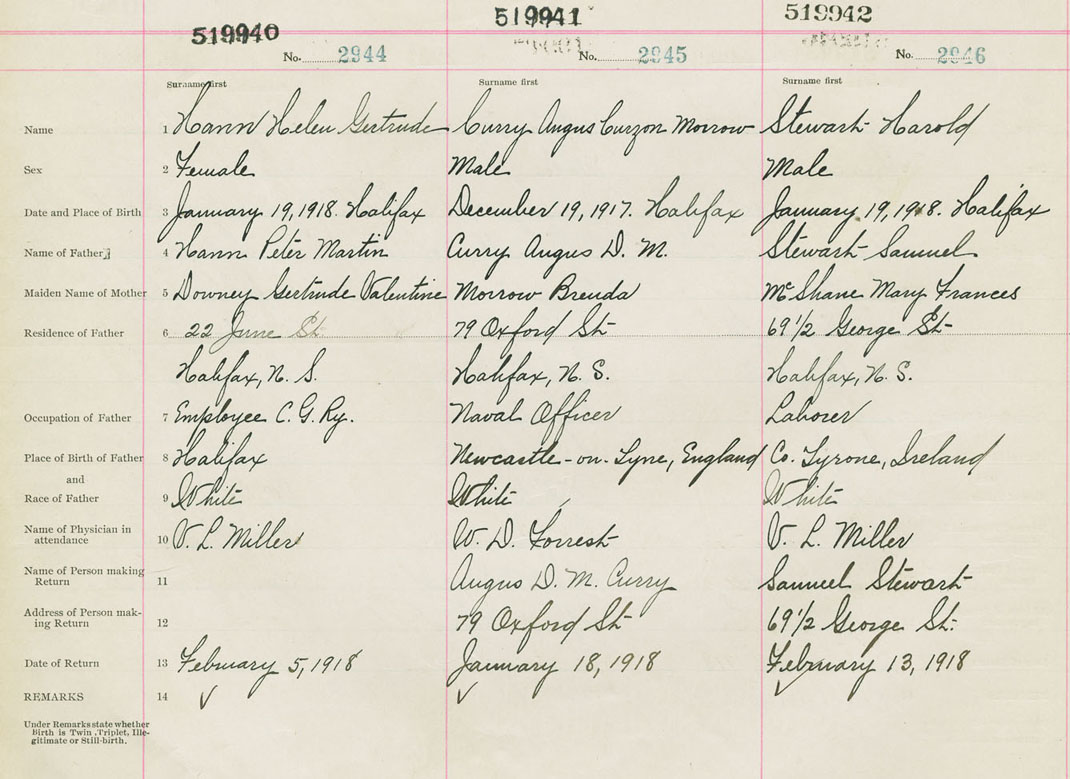 519940 519941 519942
No. 2944 No. 2945 No. 2946
Surname first Surname first Surname first
Name 1 Hann Helen Gertrude Curry Angus Curzon Morrow Stewart Harold
Sex 2 Female Male Male
Date and Place of Birth 3 January 19, 1918. Halifax December 19, 1917. Halifax January 19, 1918. Halifax
Name of Father 4 Hann Peter Martin Curry Angus D. M. Stewart Samuel
Maiden Name of Mother 5 Downey Gertrude Valentine Morrow Brenda McShane Mary Frances
Residence of Father 6 22 June St. 79 Oxford St. 69 1/2 George St.
Halifax, N. S. Halifax, N. S. Halifax, N. S.
Occupation of Father 7 Employee C. G. Ry. Naval Officer Laborer
Place of Birth of Father 8 Halifax Newcastle-on-Tyne, England Co. Tyrone, Ireland
and
Race of Father 9 White White White
Name of Physician in
attendance 10 V. L. Miller W. D. Forrest V. L. Miller
Name of Person making
Return 11 Angus D. M. Curry Samuel Stewart
Address of Person mak-
ing Return 12 79 Oxford St. 69 1/2 George St.
Date of Return 13 February 5, 1918 January 18, 1918 February 13, 1918
REMARKS 14 ✓ ✓ ✓
Under Remarks state whether
Birth is Twin, Triplet, Ille-
gitimate or Still-birth.